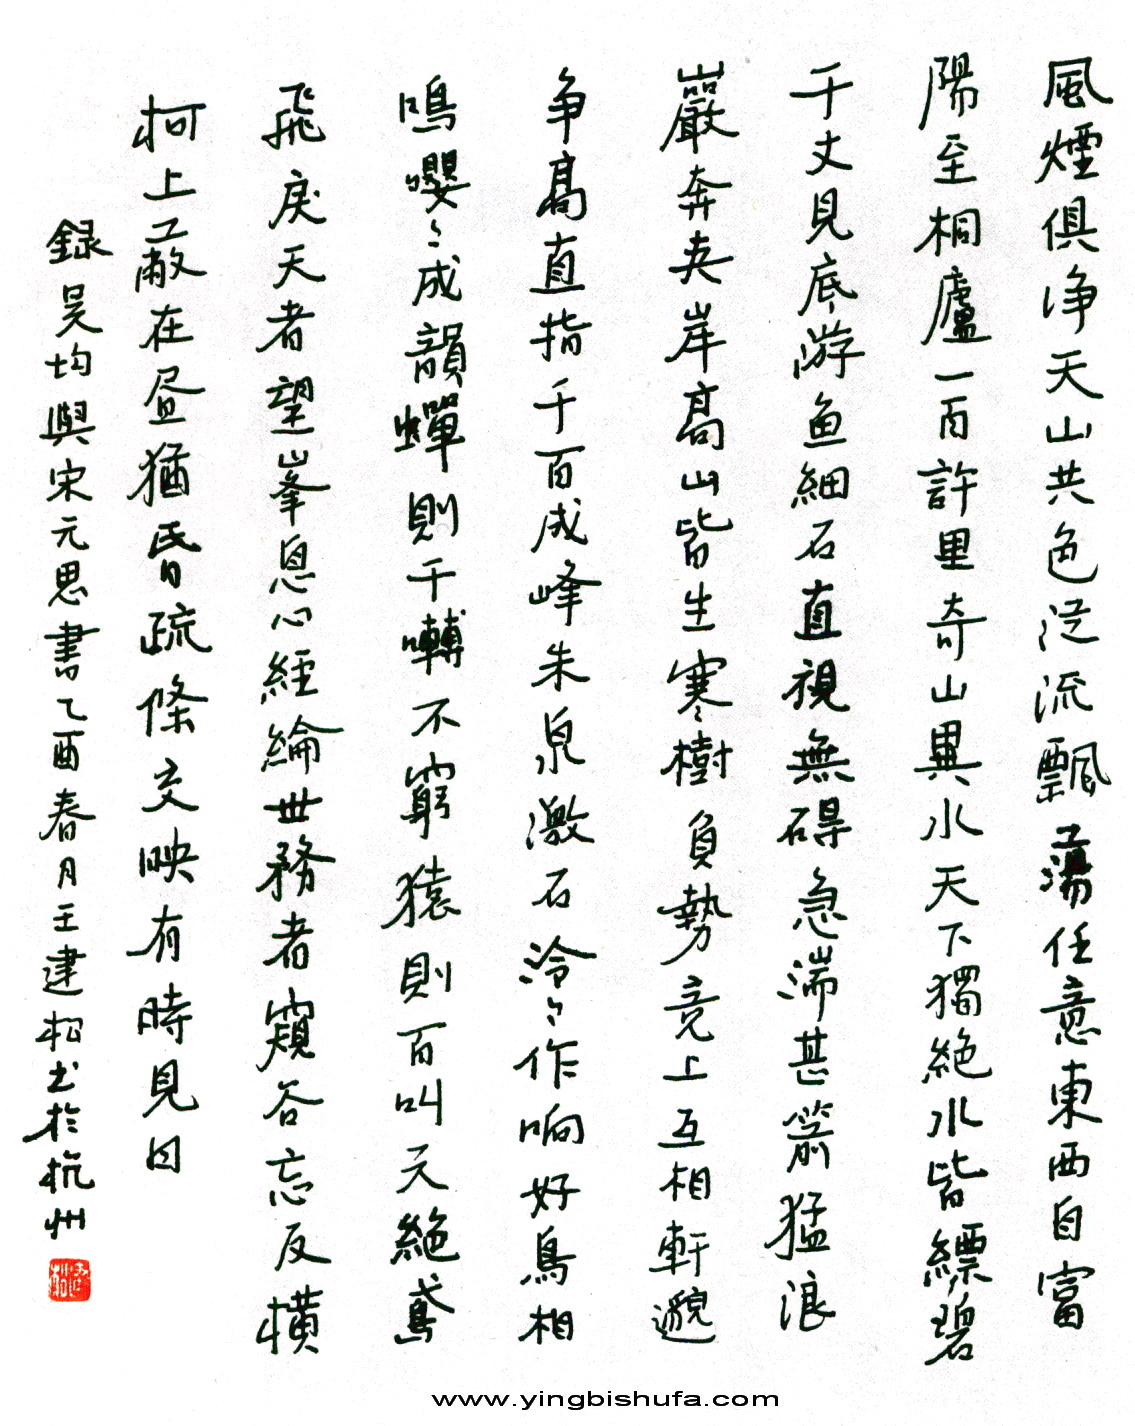 風煙俱净天山共色從流飄蕩任意東西自富
陽至桐廬一百許里奇山異水天下獨絶水皆縹碧
千丈見底游鱼細石直視無碍急湍甚箭猛浪
巖奔夹岸高山皆生寒樹負勢竞上互相軒邈
争高直指千百成峰朱泉激石泠〻作响好鳥相
鳴嚶〻成韻蟬則千囀不窮猿則百叫无絶鳶
飛戾天者望峯息心經綸世務者窺谷忘反横
柯上蔽在昼猶昏疏條交映有時見日
録吴均與宋元思書乙酉春月王建松书於杭州
www.yingbishufa.com